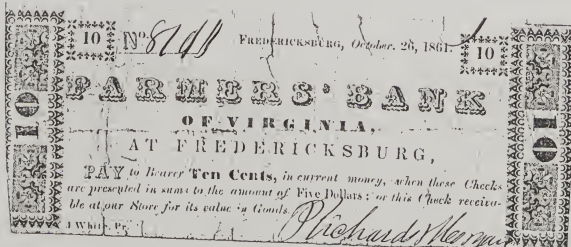 10 No. FREDERICKSBURG, October. 26, 1861 10
FARMERS' BANK
OF VIRGINIA,
AT FREDERICKSBURG,
PAY to Bearer Ten Cents, in current money, when these Checks
are presented in sums to the amount of Five Dollars; or this Check receiva-
ble at our Store for its value in Goods.
J White, Pr.
10
10